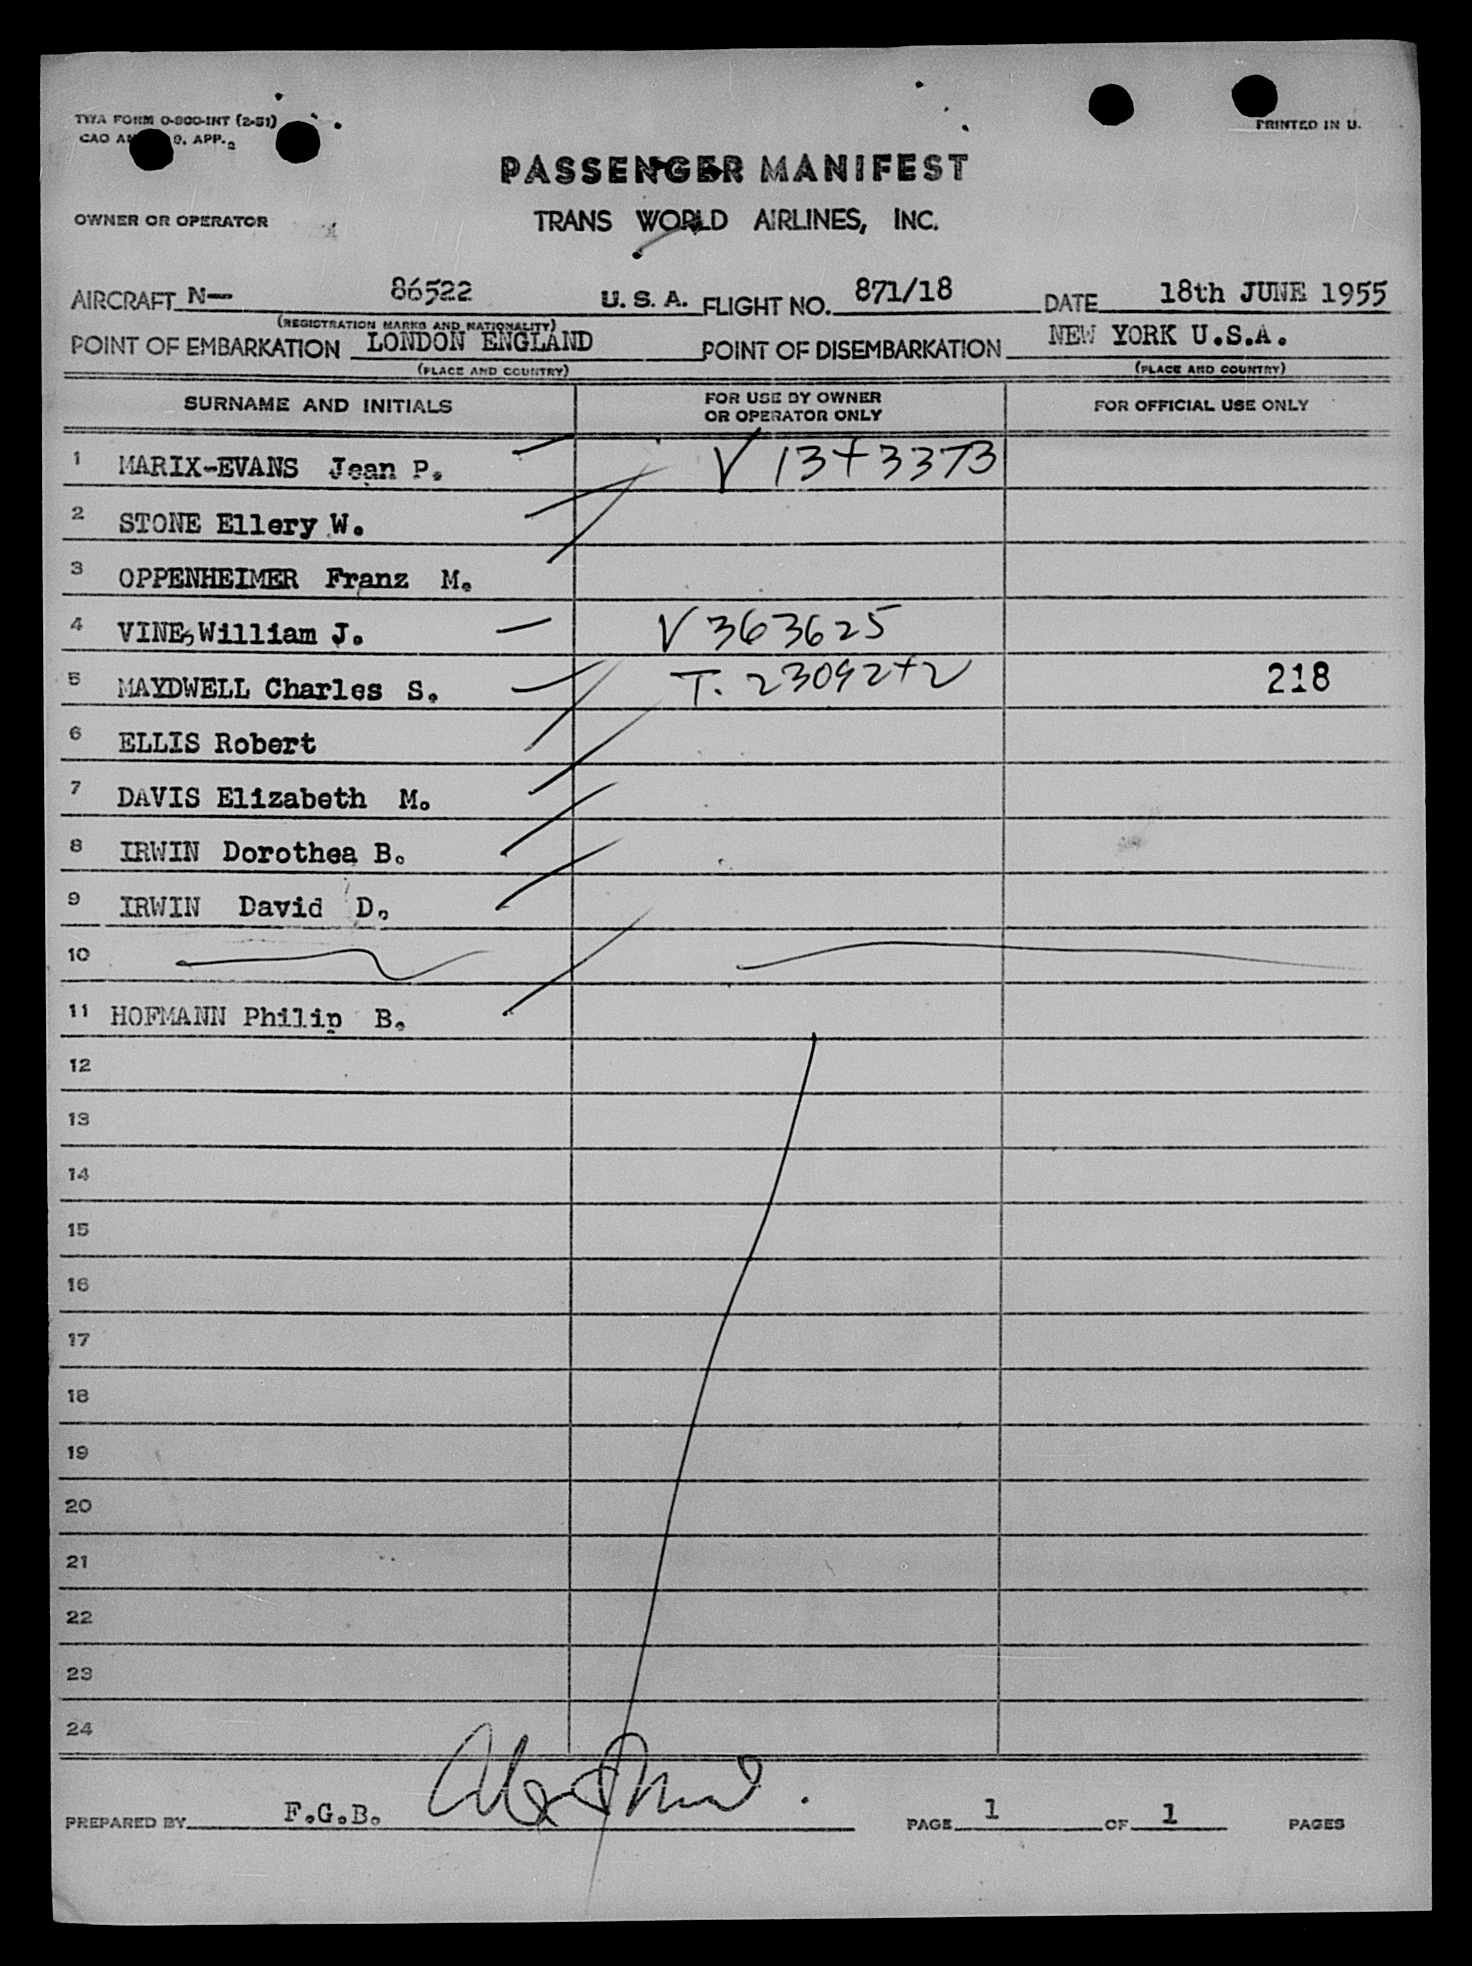 TWA FORM O-800-INT (2-51)
PRINTED IN U.
CAO 9. APP. 2
PASSENGER MANIFEST
OWNER OR OPERATOR
TRANS WORLD AIRLINES, INC.
AIRCRAFT N— 86522 U. S. A. FLIGHT NO. 871/18 DATE 18th JUNE 1955
(REGISTRATION MARKS AND NATIONALITY)
POINT OF EMBARKATION LONDON ENGLAND POINT OF DISEMBARKATION NEW YORK U.S.A.
(PLACE AND COUNTRY) (PLACE AND COUNTRY)
SURNAME AND INITIALS FOR USE BY OWNER OR OPERATOR ONLY FOR OFFICIAL USE ONLY
1 MARIX-EVANS Jean P. V 13+3373
2 STONE Ellery W.
3 OPPENHEIMER Franz M.
4 VINE, William J. V 363625
5 MAYDWELL Charles S. T. 23092+2 218
6 ELLIS Robert
7 DAVIS Elizabeth M.
8 IRWIN Dorothea B.
9 IRWIN David D.
10
11 HOFMANN Philip B.
12
13
14
15
16
17
18
19
20
21
22
23
24
PREPARED BY F.G.B. PAGE 1 OF 1 PAGES